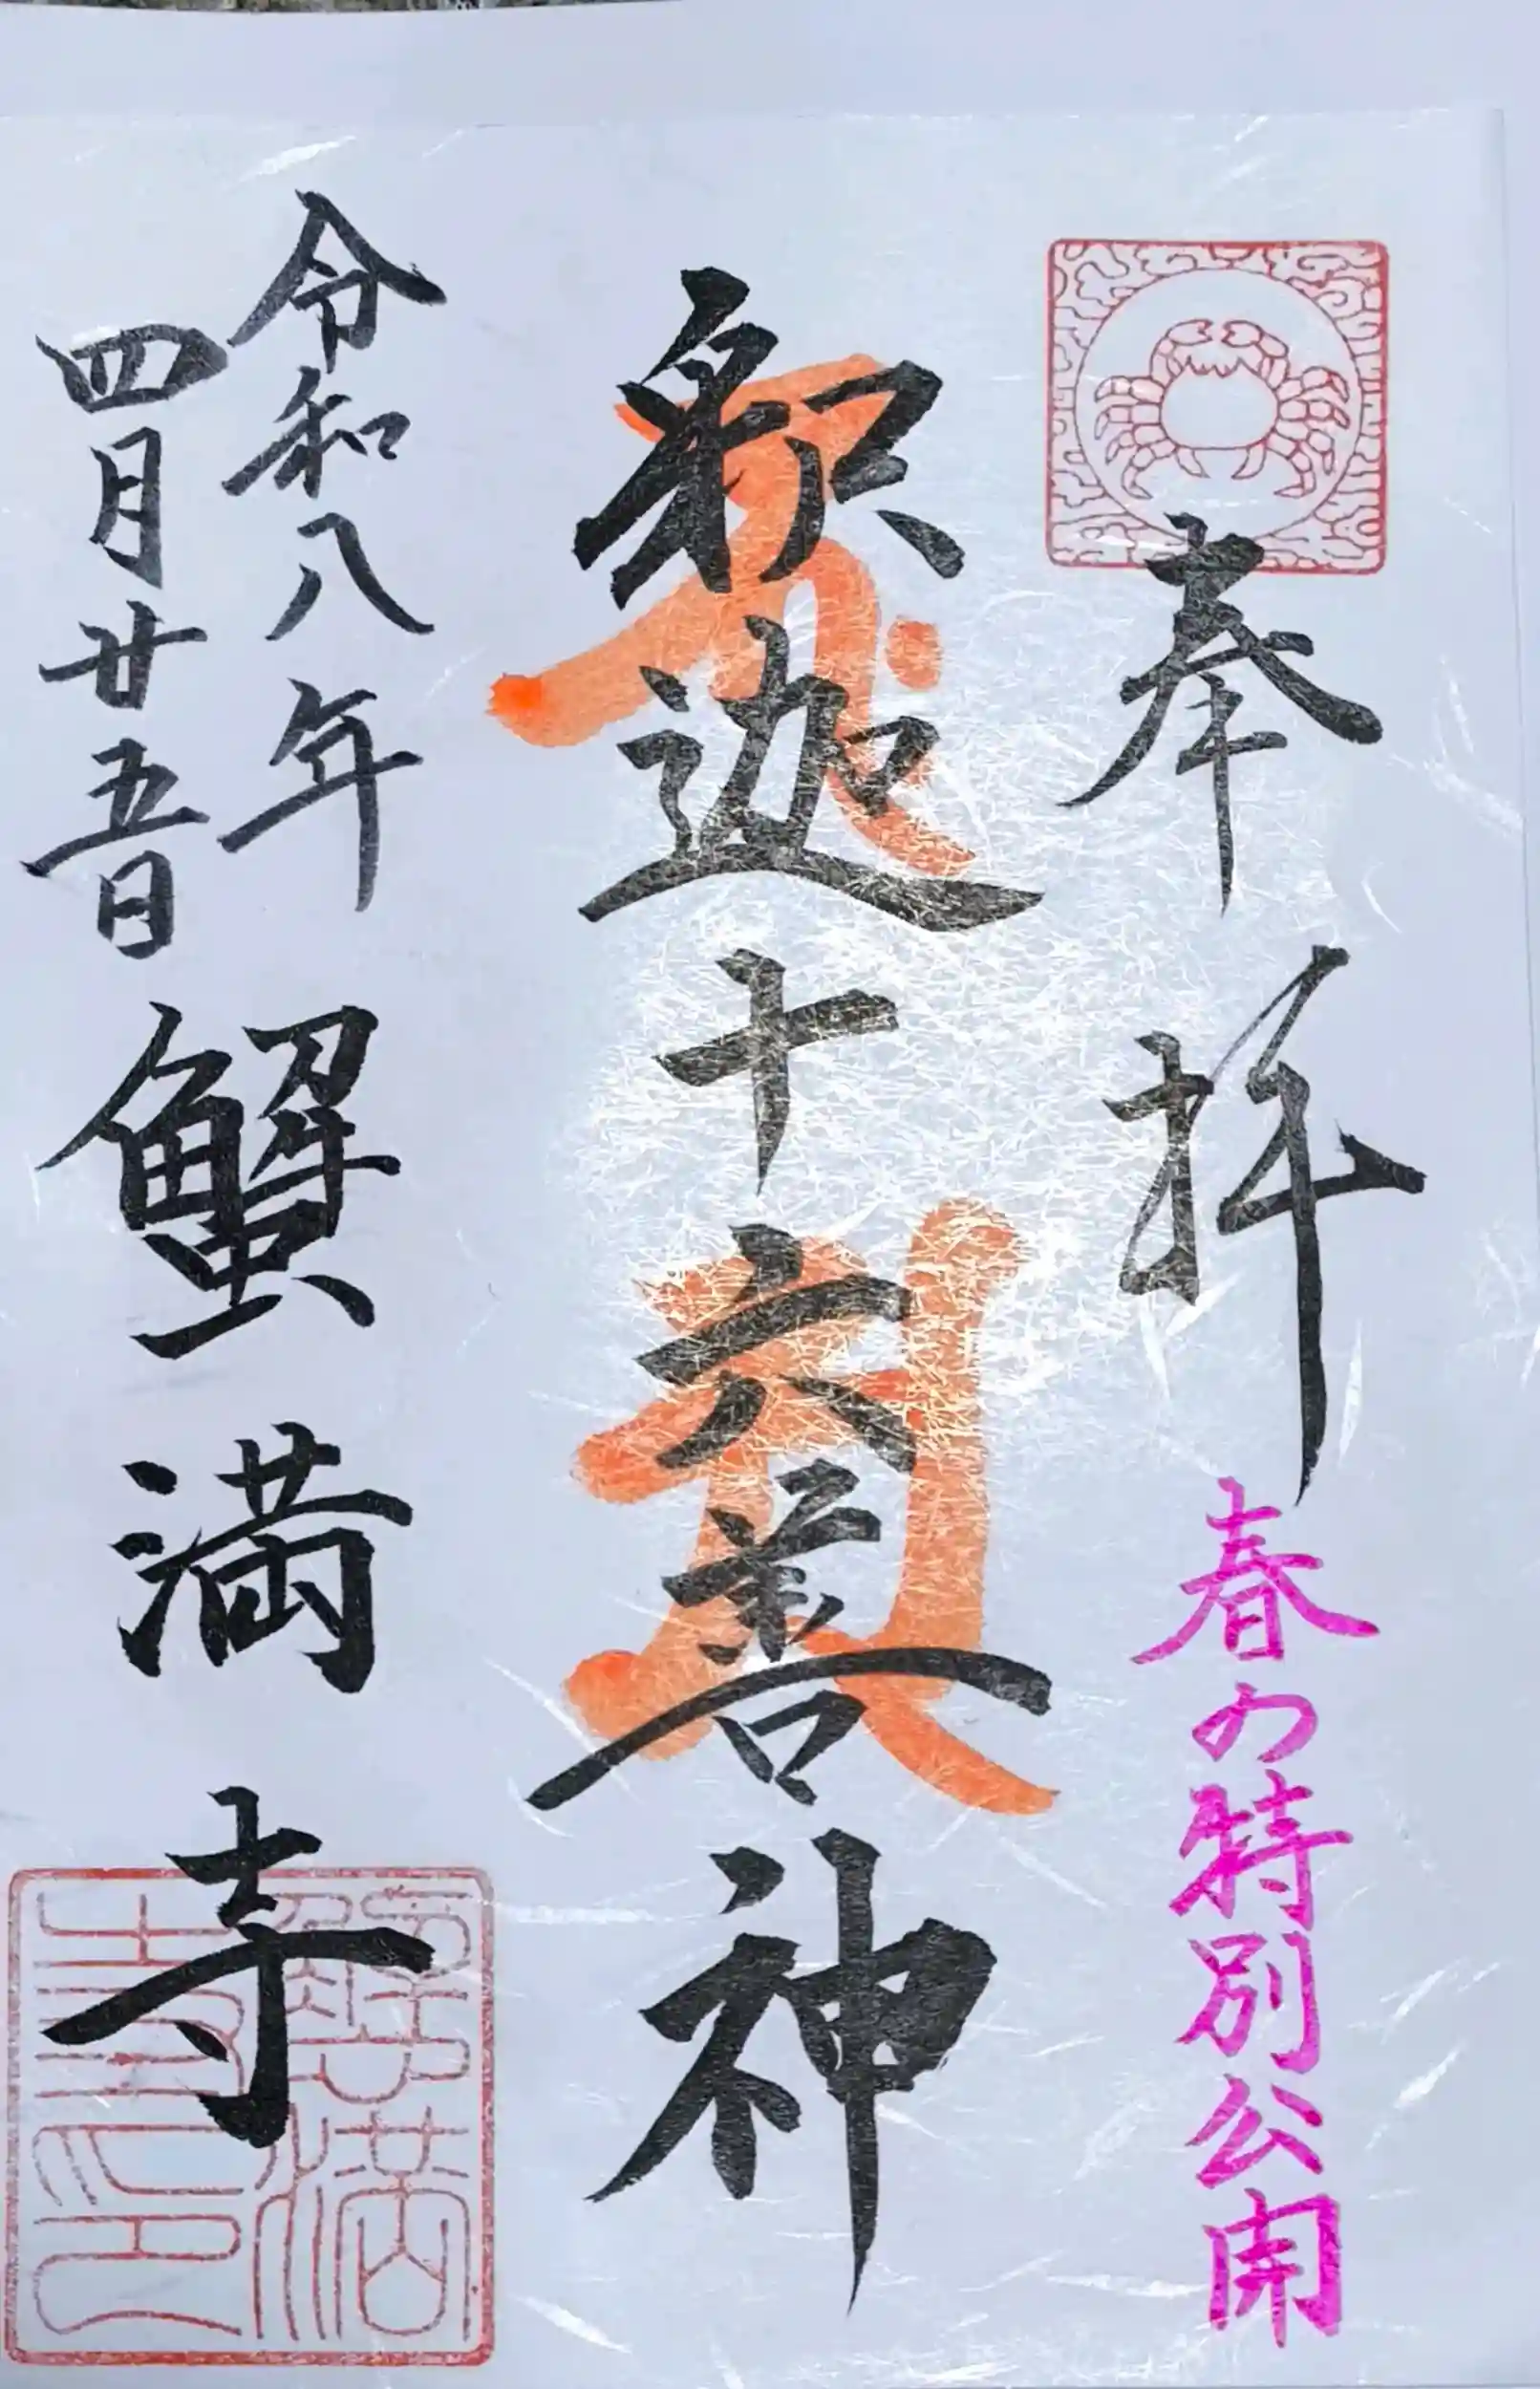 奉拝
春の特別公開
釈迦十六善神
令和八年
四月廿五日
蟹満寺
蟹満寺印